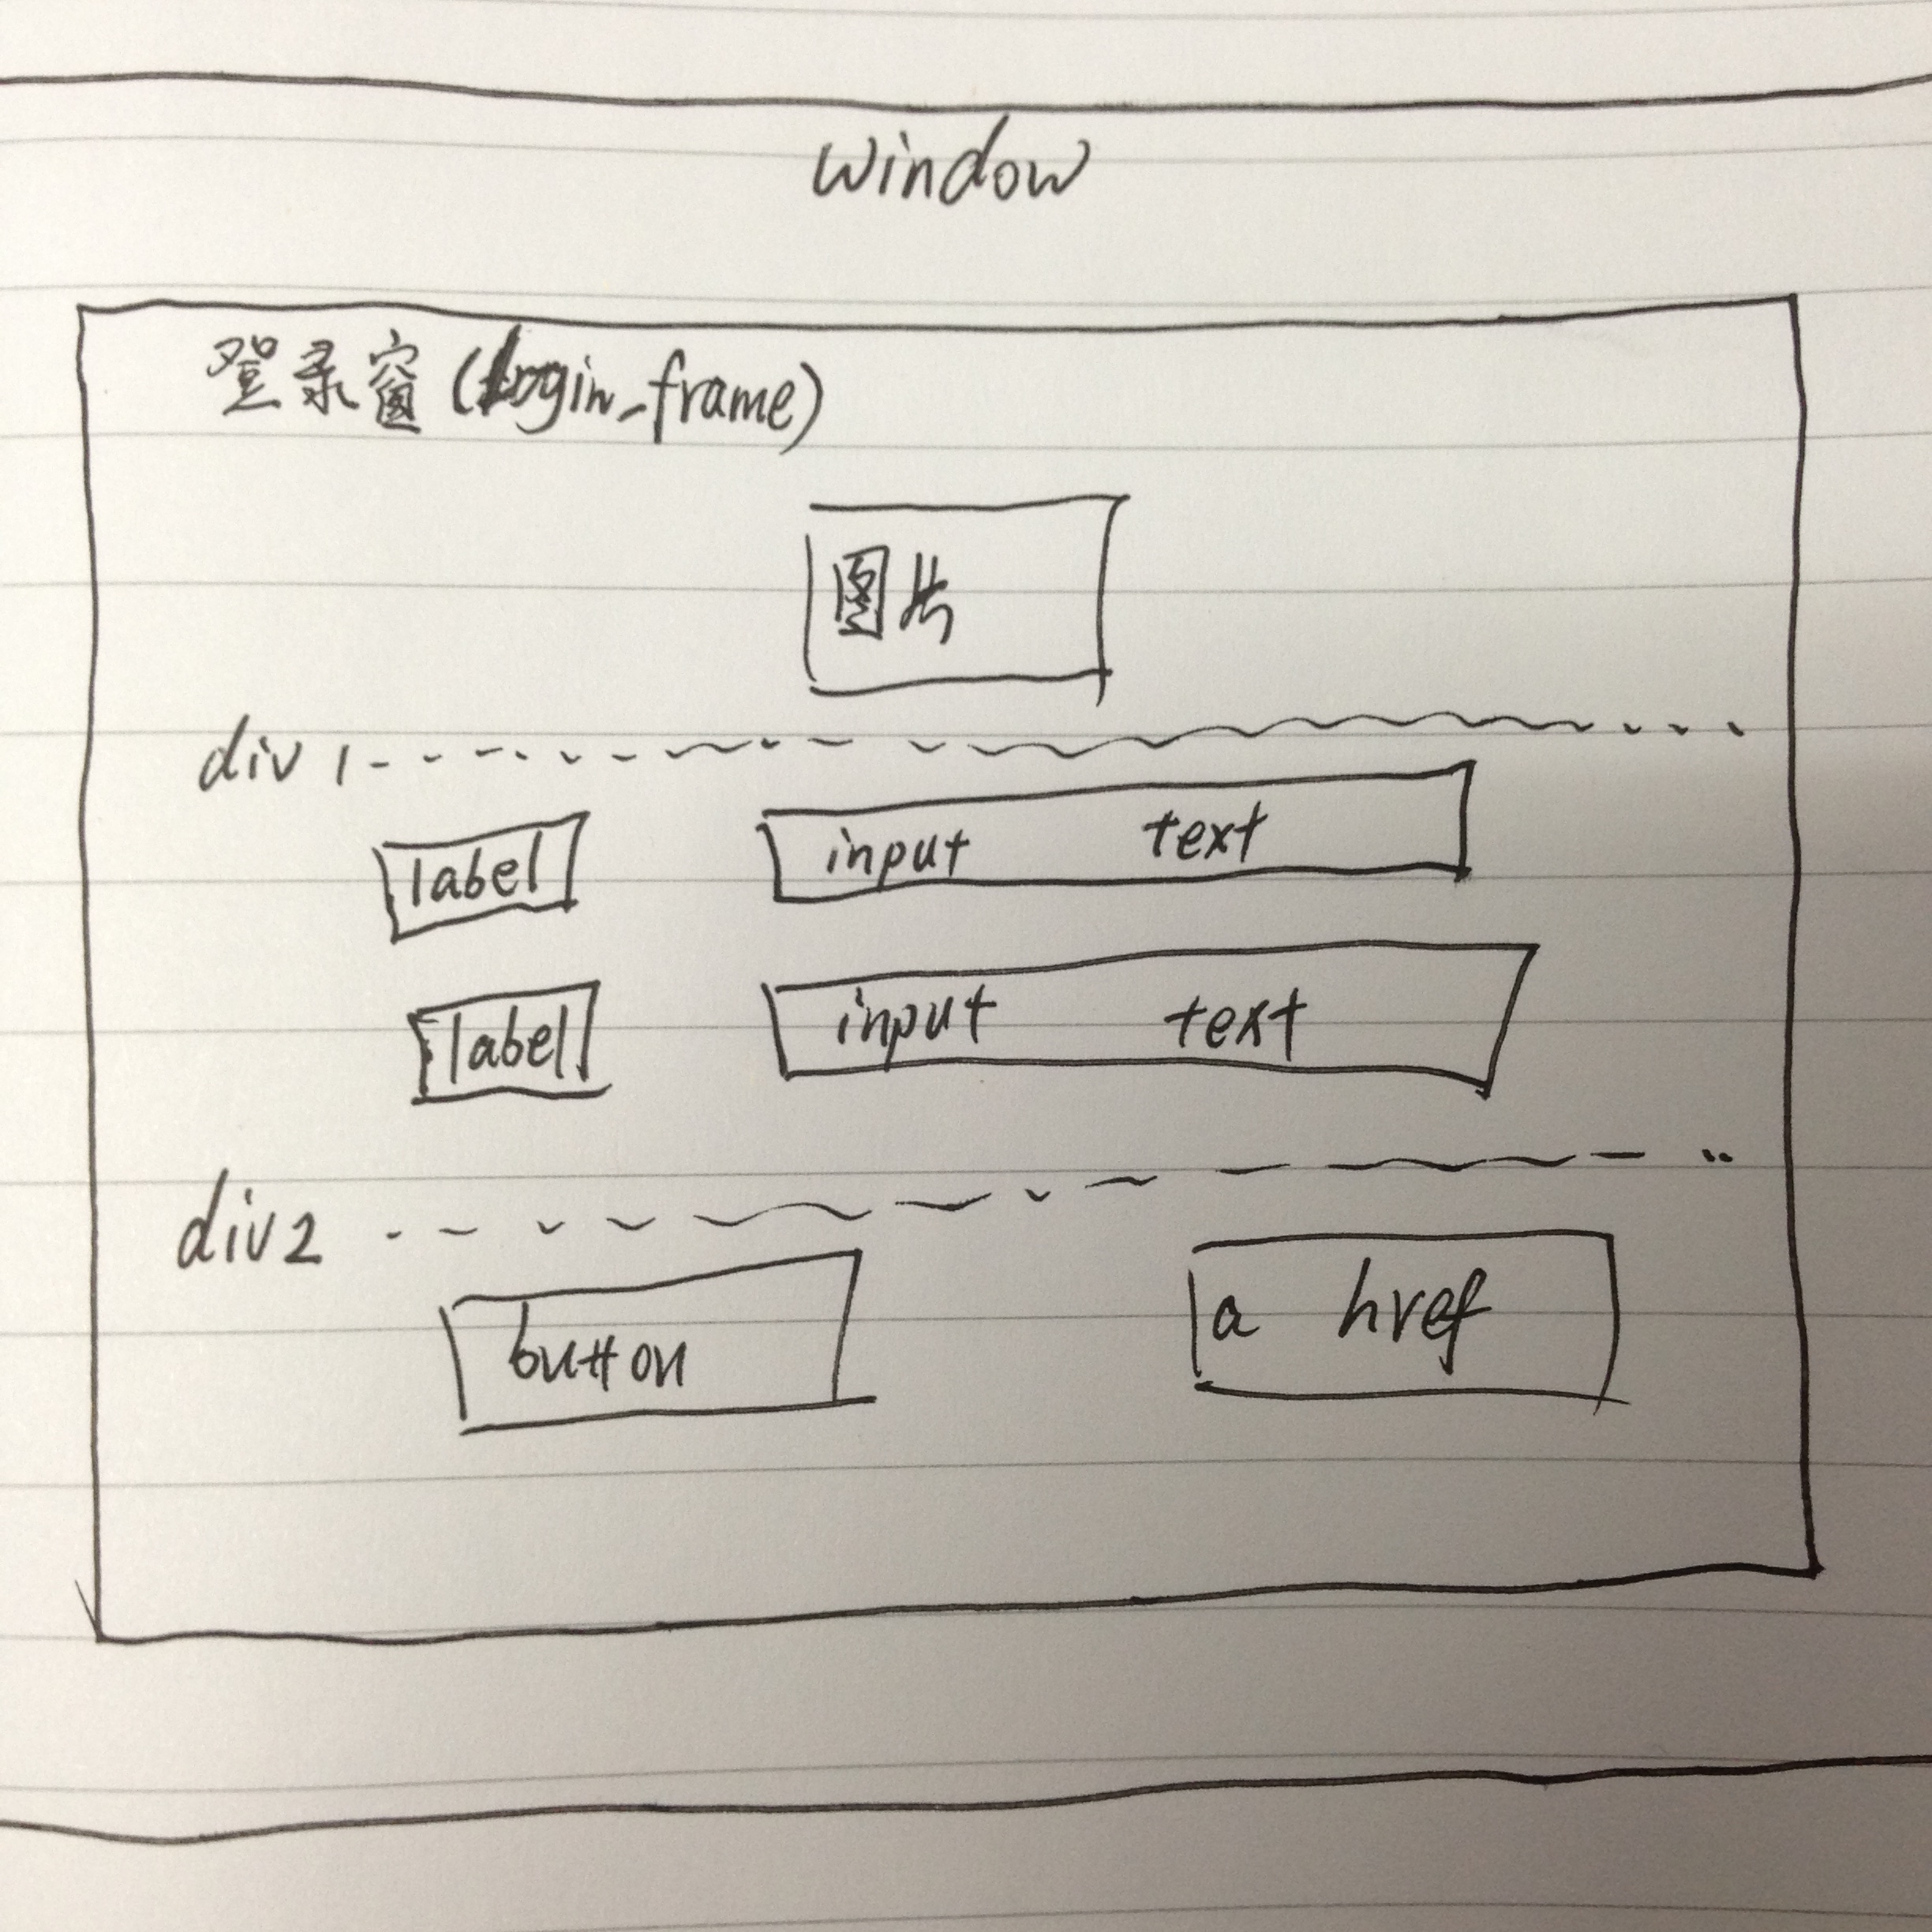 window
登录窗(login_frame)
图片
div 1
label input text
label input text
div2
button a href